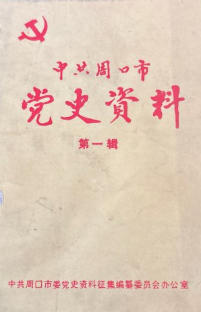 中共周口市
党史資料
第一辑
中共周口市委党史资料征集编纂委员会办公室